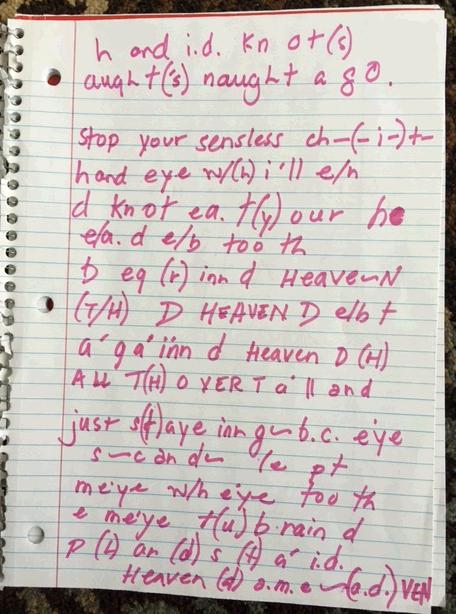 h and i.d. kn ot(s)
aught('s) naught a go.
stop your sensless ch-(-i-)t-
hand eye w/(h) i'll e/n
d knot ea. t(y) our he
e/a. d e/b too th
b eq (r) inn d Heaven
(T/H) D HEAVEN D e/b t
a' g a' inn d Heaven D (H)
ALL T(H) O VER T a' ll and
just s(t)aye inn g b.c. eye
s c an d le pt
m'eye w/h eye too th
e m'eye t(u) b.rain d
p (l) an (d) s (t) a' i.d.
Heaven (d) a.m.e (a.d.) VEN